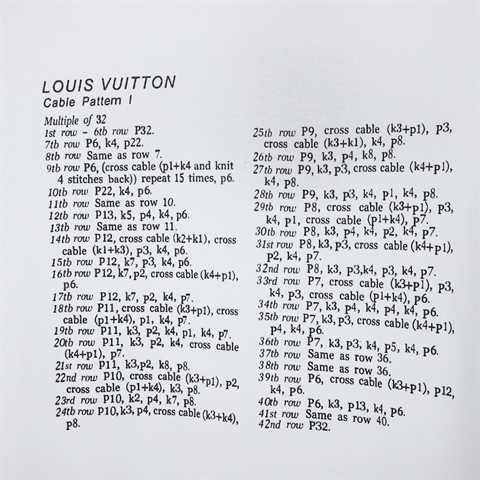 LOUIS VUITTON
Cable Pattern I
Multiple of 32
1st row – 6th row P32.
7th row P6, k4, p22.
8th row Same as row 7.
9th row P6, (cross cable (p1+k4 and knit
4 stitches back)) repeat 15 times, p6.
10th row P22, k4, p6.
11th row Same as row 10.
12th row P13, k5, p4, k4, p6.
13th row Same as row 11.
14th row P12, cross cable (k2+k1), cross
cable (k1+k3), p3, k4, p6.
15th row P12, k7, p3, k4, p6.
16th row P12, k7, p2, cross cable (k4+p1),
p6.
17th row P12, k7, p2, k4, p7.
18th row P11, cross cable (k3+p1), cross
cable (p1+k4), p1, k4, p7.
19th row P11, k3, p2, k4, p1, k4, p7.
20th row P11, k3, p2, k4, cross cable
(k4+p1), p7.
21st row P11, k3,p2, k8, p8.
22nd row P10, cross cable (k3+p1), p2,
cross cable (p1+k4), k3, p8.
23rd row P10, k2, p4, k7, p8.
24th row P10, k3, p4, cross cable (k3+k4),
p8.
25th row P9, cross cable (k3+p1), p3,
cross cable (k3+k1), k4, p8.
26th row P9, k3, p4, k8, p8.
27th row P9, k3, p3, cross cable (k4+p1),
k4, p8.
28th row P9, k3, p3, k4, p1, k4, p8.
29th row P8, cross cable (k3+p1), p3,
k4, p1, cross cable (p1+k4), p7.
30th row P8, k3, p4, k4, p2, k4, p7.
31st row P8, k3, p3, cross cable (k4+p1),
p2, k4, p7.
32nd row P8, k3, p3,k4, p3, k4, p7.
33rd row P7, cross cable (k3+p1), p3,
k4, p3, cross cable (p1+k4), p6.
34th row P7, k3, p4, k4, p4, k4, p6.
35th row P7, k3, p3, cross cable (k4+p1),
p4, k4, p6.
36th row P7, k3, p3, k4, p5, k4, p6.
37th row Same as row 36.
38th row Same as row 36.
39th row P6, cross cable (k3+p1), p12,
k4, p6.
40th row P6, k3, p13, k4, p6.
41st row Same as row 40.
42nd row P32.